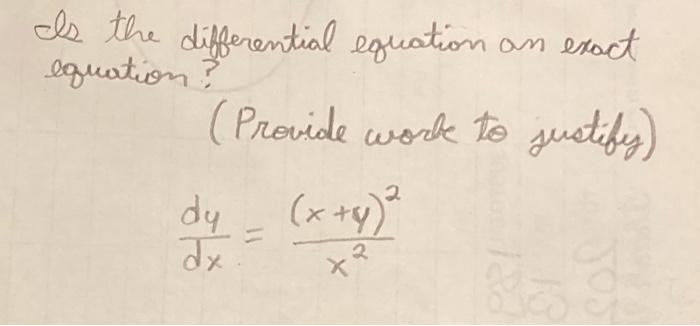 Is the differential equation an exact
equation?
(Provide work to justify)
dy/dx = (x+y)²/x²